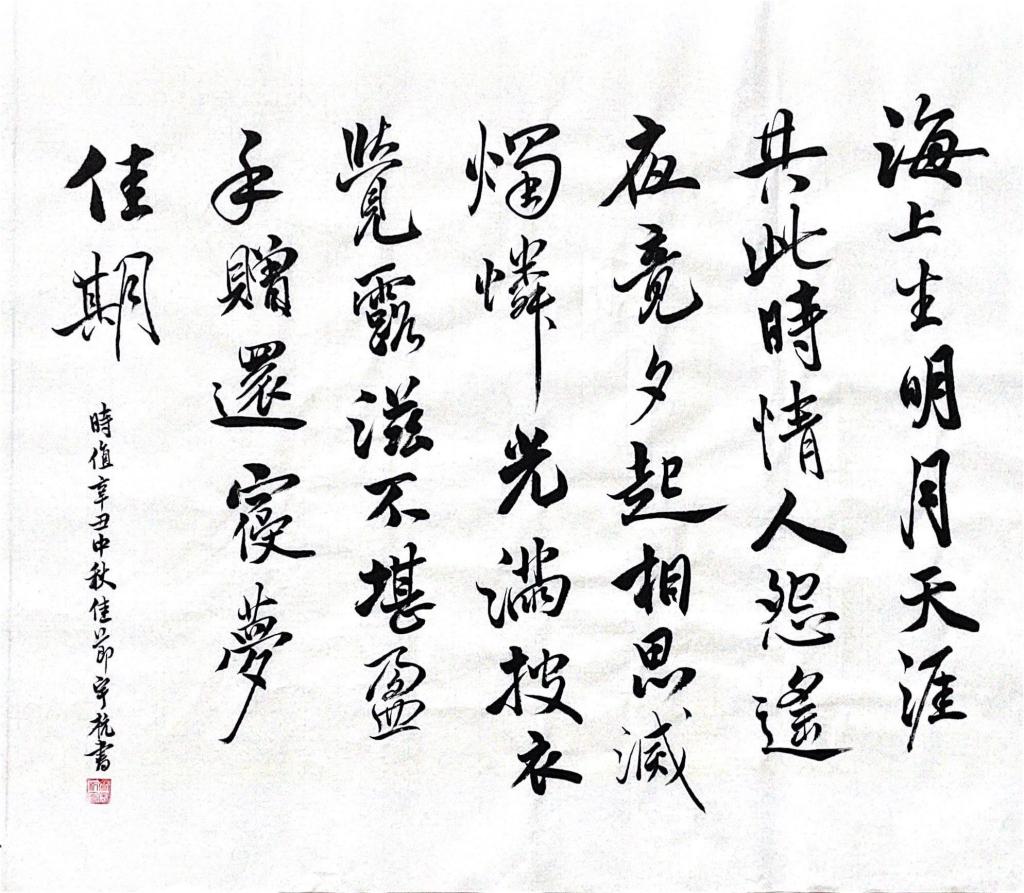 海上生明月天涯
共此時情人怨遙
夜竟夕起相思滅
燭憐光滿披衣
覺露滋不堪盈
手贈還寢夢
佳期
時值辛丑中秋佳節宇杭書